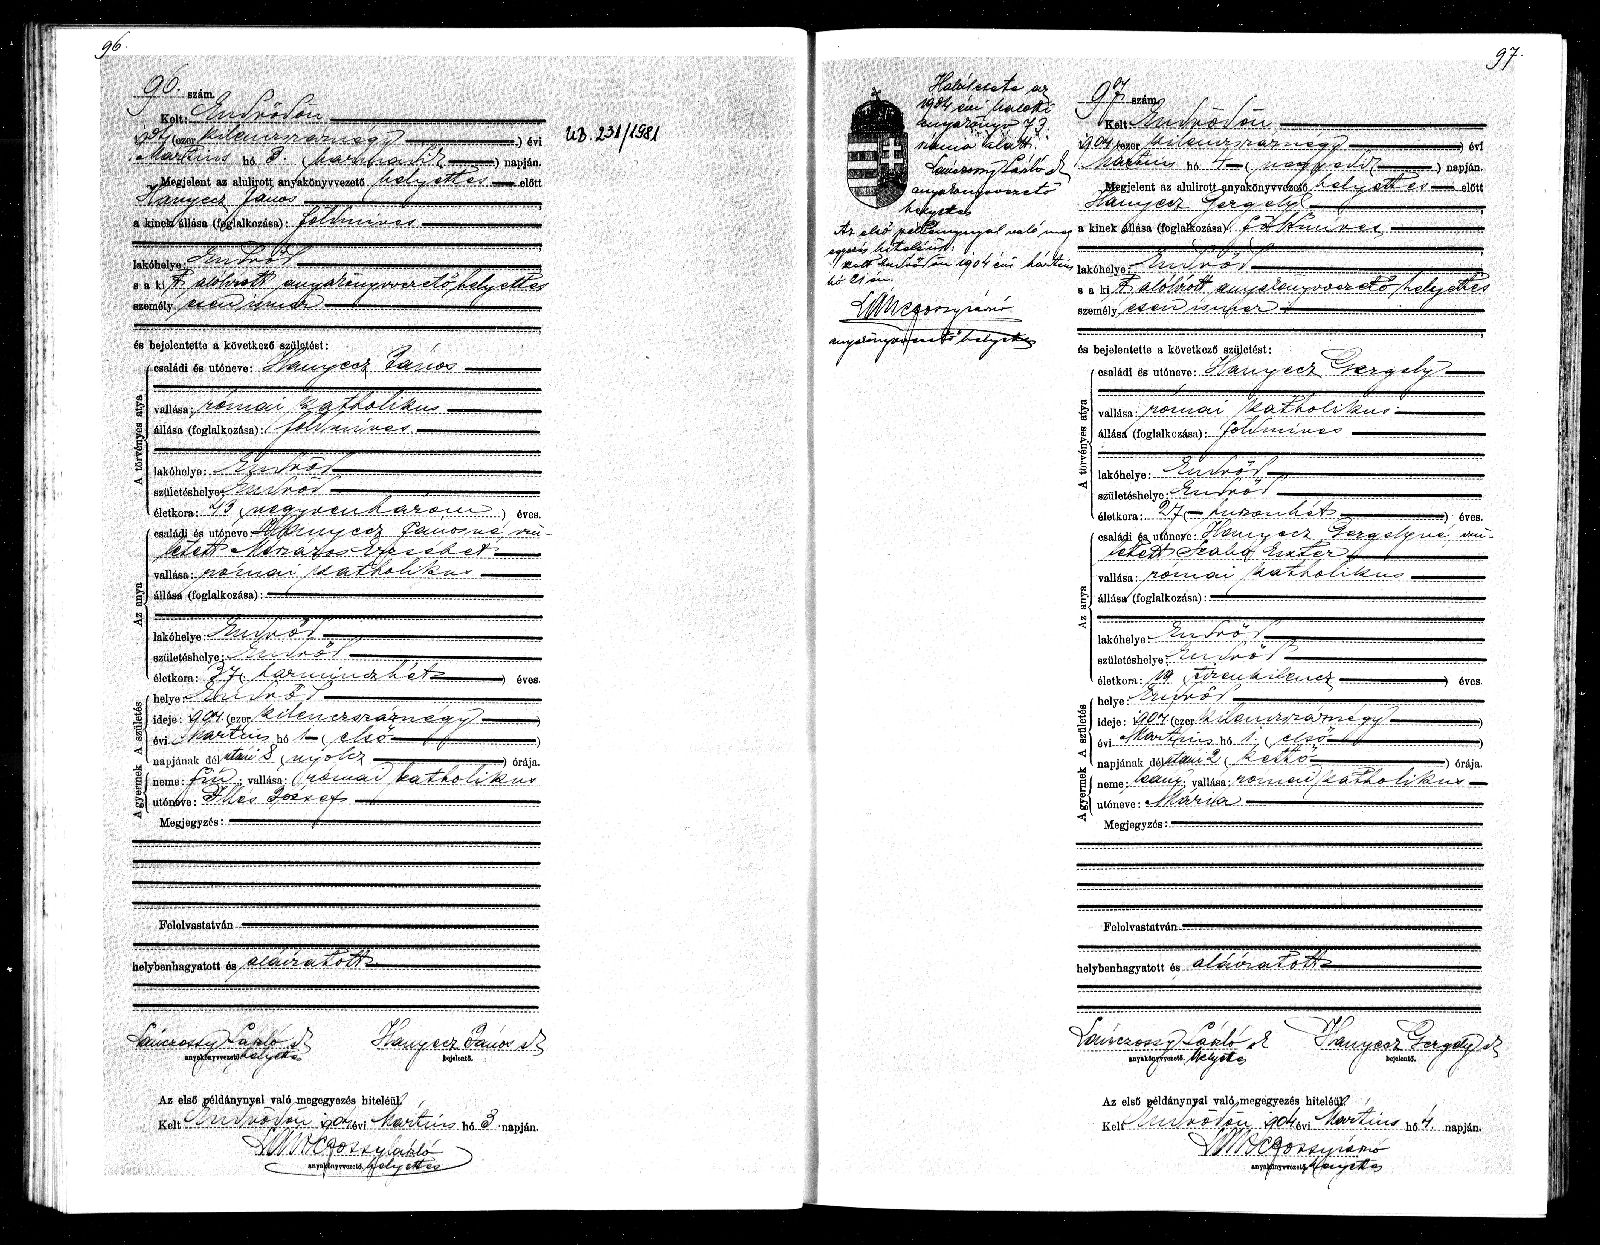 96.
96. szám.
Kelt: Endrődön
904 (ezer kilenczszáznégy) évi
Martius hó 3. (harmadik) napján.
Megjelent az alulirott anyakönyvvezető helyettes előtt
Hanyecz János
a kinek állása (foglalkozása): földmives
lakóhelye Endrőd
s a ki t alólirott anyakönyvvezető helyettes
személyesen ismer
és bejelentette a következő születést:
A törvényes atya
családi és utóneve: Hanyecz János
vallása: római katholikus
állása (foglalkozása): földmives
lakóhelye: Endrőd
születéshelye: Endrőd
életkora: 43 (negyvenhárom) éves.
Az anya
családi és utóneve Hanyecz Jánosné szü-
letett Mészáros Erzsébet
vallása: római katholikus
állása (foglalkozása):
lakóhelye: Endrőd
születéshelye: Endrőd
életkora: 37 (harminczhét) éves.
A születés
helye: Endrőd
ideje: 904 (ezer kilenczszáznégy)
évi Martius hó 1 (első)
napjának dél utáni 8 (nyolcz) órája.
A gyermek
neme: fiu; vallása: római katholikus
utóneve: Illés József
Megjegyzés:
Felolvastatván
helybenhagyatott és aláiratott
Lánczossy László h Hanyecz János
anyakönyvvezető helyettes bejelentő.
Az első példánynyal való megegyezés hiteléül.
Kelt Endrődön 904 évi Mártius hó 3 napján.
Lánczossy László
anyakönyvvezető helyettes
UB. 231/1981
97.
Halálesete az
1904 évi halotti
anyakönyv 73.
száma alatt.
Lánczossy László
anyakönyvvezető
helyettes
Az első példánynyal való meg
egyezés hiteléül:
Kelt Endrődön 1904 évi Mártius
hó 21 én.
Lánczossy László
anyakönyvvezető helyettes
97. szám.
Kelt: Endrődön
904 (ezer kilenczszáznégy) évi
Martius hó 4 (negyedik) napján.
Megjelent az alulirott anyakönyvvezető helyettes előtt
Hanyecz Gergely
a kinek állása (foglalkozása): földmives,
lakóhelye: Endrőd
s a ki t alólirott anyakönyvvezető helyettes
személyesen ismer
és bejelentette a következő születést:
A törvényes atya
családi és utóneve: Hanyecz Gergely
vallása: római katholikus
állása (foglalkozása): földmives
lakóhelye: Endrőd
születéshelye: Endrőd
életkora: 27 (huszonhét) éves.
Az anya
családi és utóneve: Hanyecz Gergelyné, szü-
letett Szabó Eszter
vallása: római katholikus
állása (foglalkozása):
lakóhelye: Endrőd
születéshelye: Endrőd
életkora: 19 tizenkilencz éves.
A születés
helye: Endrőd
ideje: 904 (ezer kilenczszáznégy)
évi Martius hó 1. (első)
napjának dél utáni 2 (kettő) órája.
A gyermek
neme: leány; vallása: római katholikus
utóneve: Mária
Megjegyzés:
Felolvastatván
helybenhagyatott és aláiratott
Lánczossy László Hanyecz Gergely
anyakönyvvezető. helyettes bejelentő.
Az első példánynyal való megegyezés hiteléül.
Kelt Endrődön 904 évi Mártius hó 4. napján.
Lánczossy László
anyakönyvvezető. helyettes